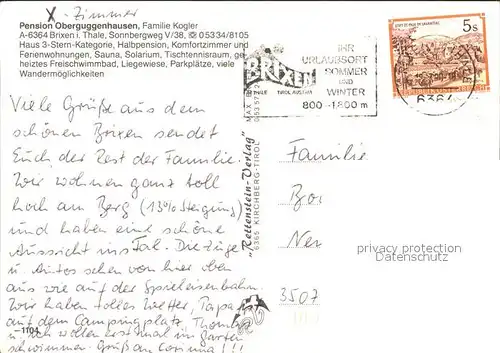 X - Zimmer
Pension Oberguggenhausen, Familie Kogler
A-6364 Brixen i. Thale, Sonnbergweg V/38, ☏ 05334/8105
Haus 3-Stern-Kategorie, Halbpension, Komfortzimmer und
Ferienwohnungen, Sauna, Solarium, Tischtennisraum, ge-
heiztes Freischwimmbad, Liegewiese, Parkplätze, viele
Wandermöglichkeiten
Viele Grüße aus dem
schönen Brixen sendet
Euch der Rest der Familie.
Wir wohnen ganz toll
hoch am Berg (13% Steigung)
und haben eine schöne
Aussicht ins Tal. Die Züge
u. Autos sehen von hier oben
aus wie auf der Spieleisenbahn.
Wir haben tolles Wetter, Papa
auf dem Campingplatz, Thomas
u. ich wollen erstmal im Garten
schwimmen. Gruß an !!!
1104
"Rettenstein-Verlag"
6365 KIRCHBERG-TIROL
BRIXEN
TIROL AUSTRIA
IHR
URLAUBSORT
SOMMER
UND
WINTER
800-1800 m
5s
6364
Familie
Bo
Neu
3507
privacy protection
Datenschutz